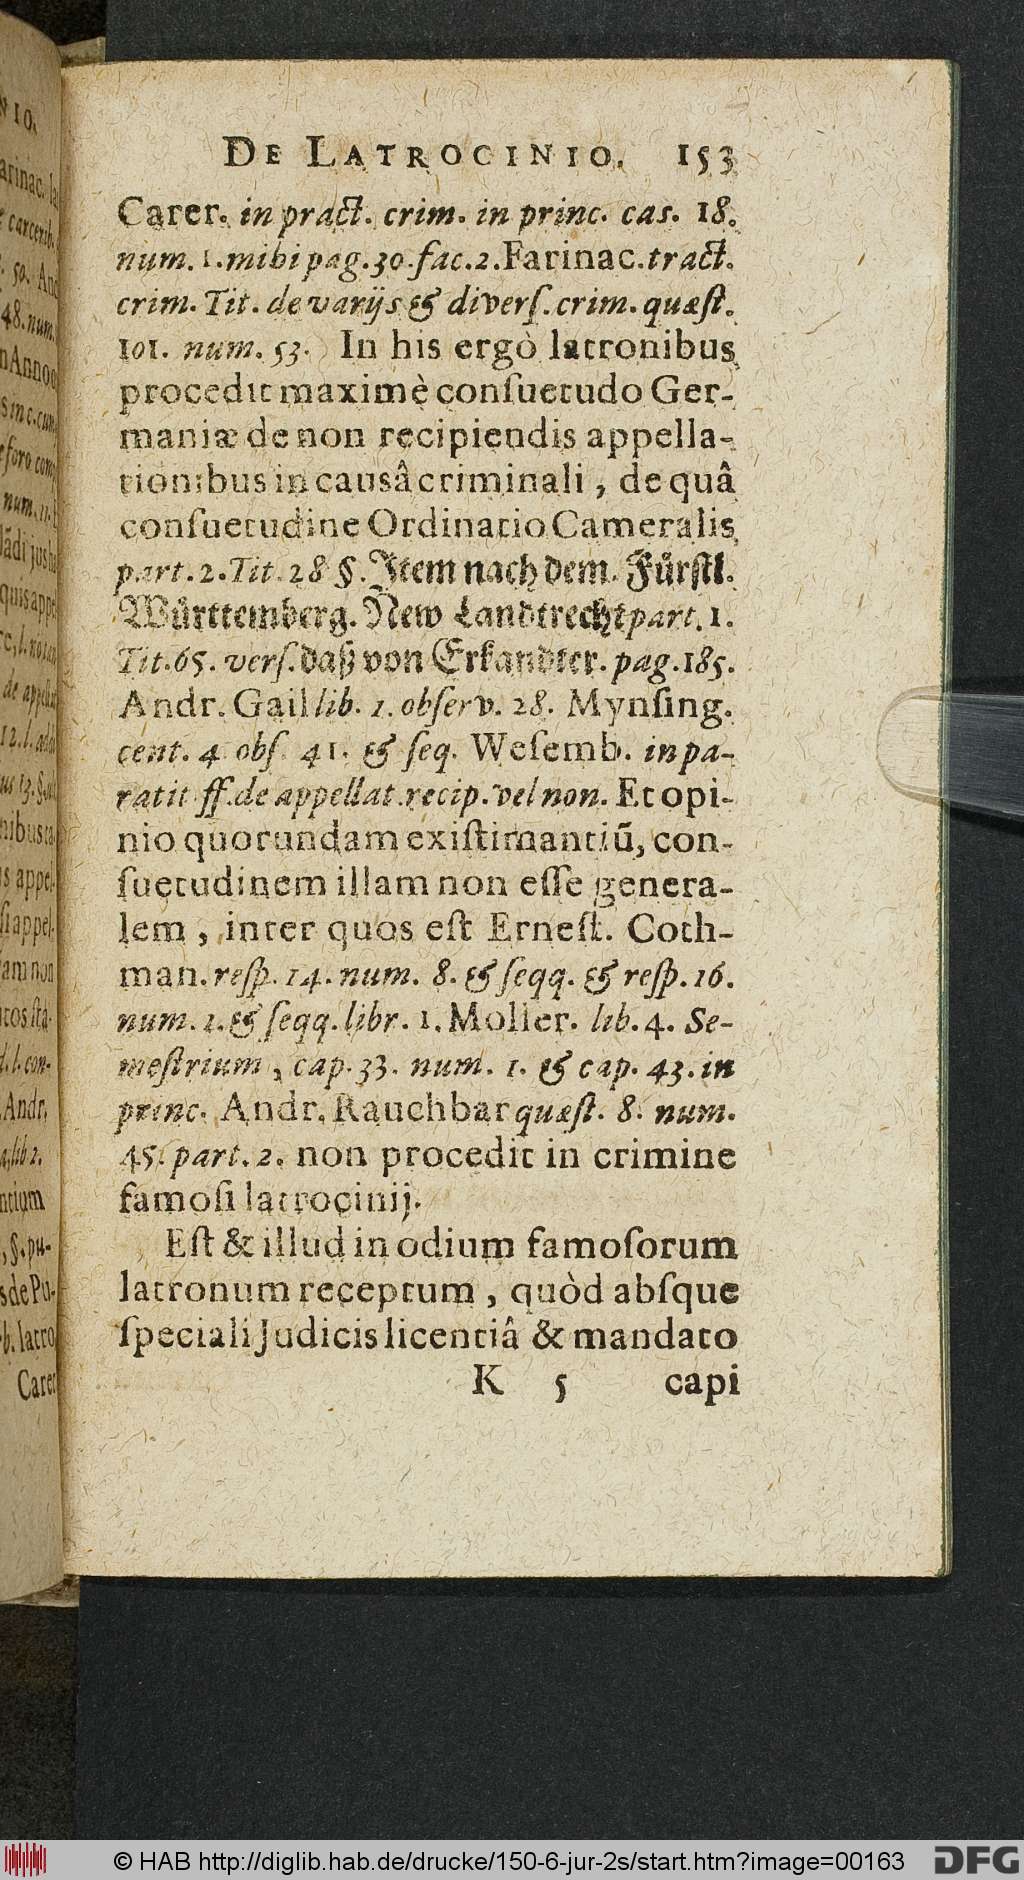 DE LATROCINIO. 153
Carer. in pract. crim. in princ. cas. 18.
num. 1. mihi pag. 30. fac. 2. Farinac. tract.
crim. Tit. de varijs & diverſ. crim. quæſt.
101. num. 53. In his ergò latronibus
procedit maximè conſuetudo Ger-
maniæ de non recipiendis appella-
tionibus in causâ criminali, de quâ
conſuetudine Ordinatio Cameralis
part. 2. Tit. 28 §. Item nach dem. Fuͤrſtl.
Wuͤrttemberg. New Landtrecht part. 1.
Tit. 65. verſ. daß von Erkandter. pag. 185.
Andr. Gail lib. 1. obſerv. 28. Mynſing.
cent. 4 obſ. 41. & ſeq. Weſemb. in pa-
ratit ff. de appellat. recip. vel non. Et opi-
nio quorundam exiſtimantiū, con-
ſuetudinem illam non eſſe genera-
lem, inter quos eſt Erneſt. Coth-
man. reſp. 14. num. 8. & ſeqq. & reſp. 16.
num. 1. & ſeqq. libr. 1. Moller. lib. 4. Se-
meſtrium, cap. 33. num. 1. & cap. 43. in
princ. Andr. Rauchbar quæſt. 8. num.
45. part. 2. non procedit in crimine
famoſi latrocinij.
Eſt & illud in odium famoſorum
latronum receptum, quòd abſque
ſpeciali Judicis licentiâ & mandato
K 5 capi
© HAB http://diglib.hab.de/drucke/150-6-jur-2s/start.htm?image=00163
DFG